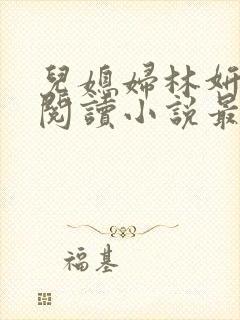 兒媳婦林妍
閱讀小說最
福基